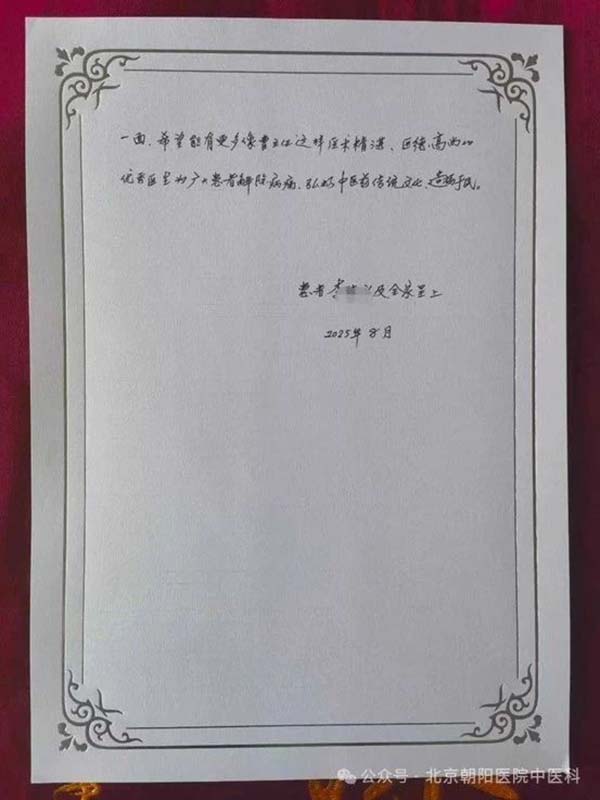 一面。希望能有更多像曹主任这样医术精湛、医德高尚的
优秀医生为广大患者解除病痛、弘扬中医药传统文化、造福于民。
患者李 及全家呈上
2025年8月
公众号·北京朝阳医院中医科